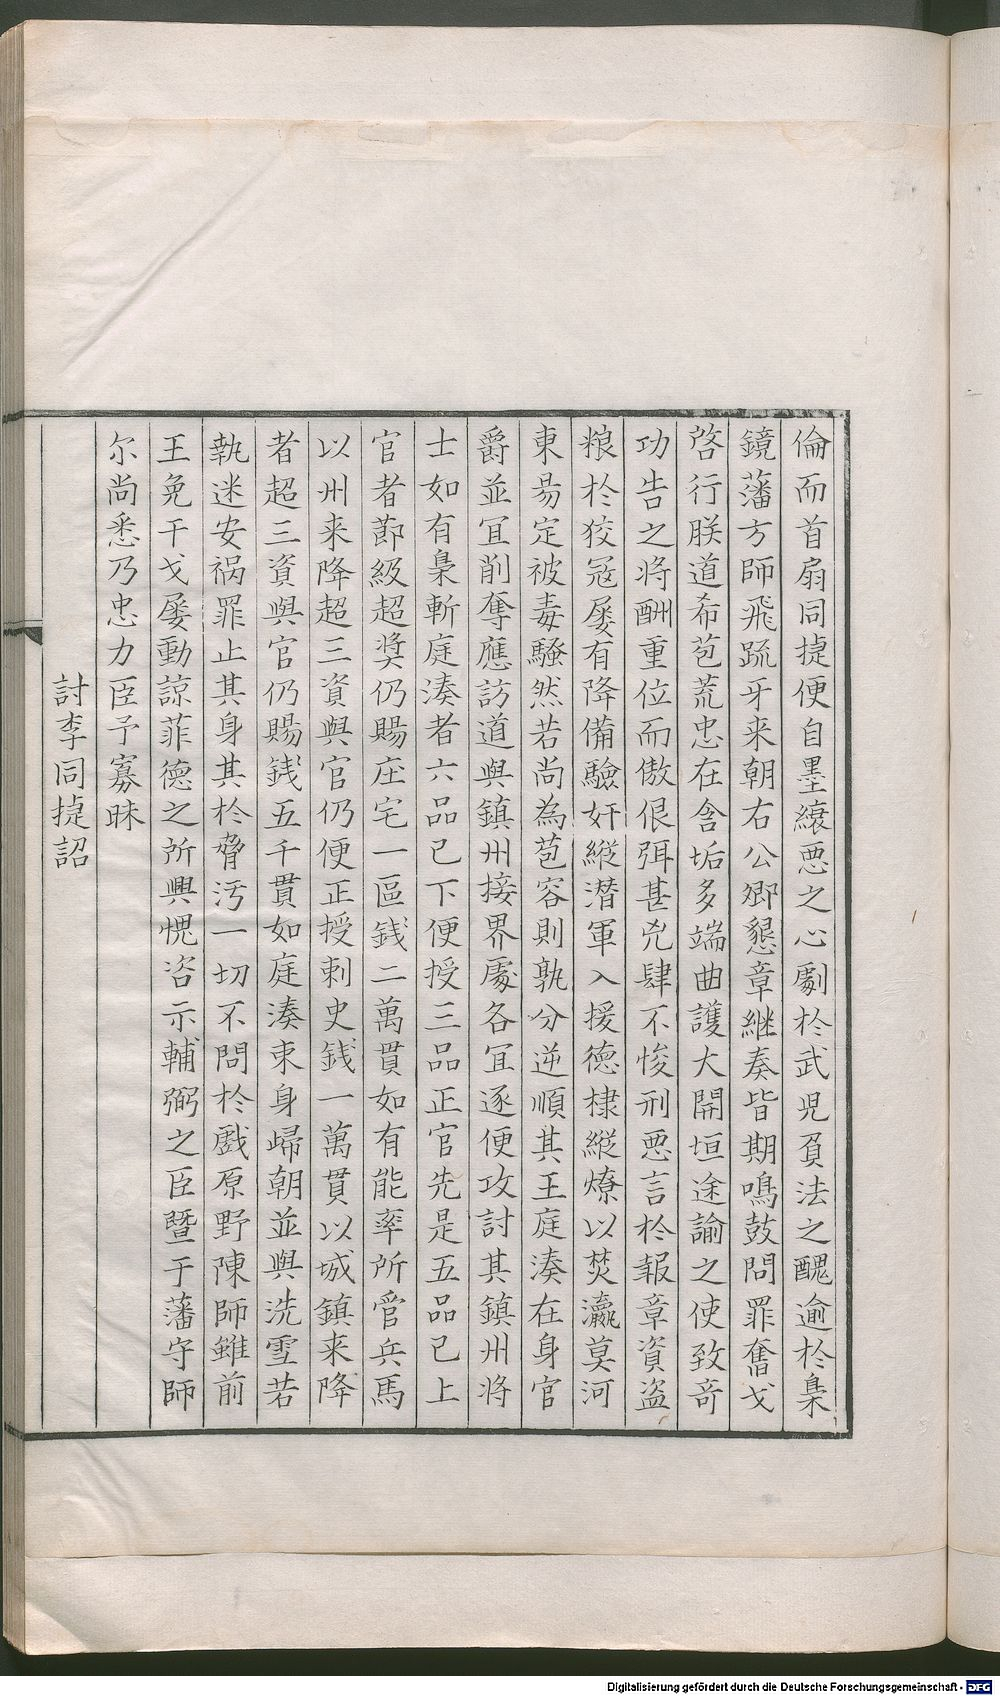 倫而首扇同㨗便自墨縗惡之心劇於武兇負法之醜逾於梟
鏡藩方師飛疏牙来朝右公卿懇章継奏皆期鳴鼓問罪奮戈
啓行朕道希苞荒忠在含垢多端曲護大開垣途諭之使致竒
功告之将酬重位而傲佷弭甚兇肆不悛刑惡言於報章資盗
粮於狡冦屡有降備驗奸縱潜軍入援德棣縱燎以焚瀛莫河
東昜定被毒騷然若尚為苞容則孰分逆順其王庭湊在身官
爵並冝削奪應訪道與鎮州接界處各冝逐便攻討其鎮州将
士如有梟斬庭湊者六品已下便授三品正官先是五品已上
官者莭級超奨仍賜庄宅一區錢二萬貫如有能率所管兵馬
以州来降超三資與官仍便正授刺史錢一萬貫以城鎮来降
者超三資與官仍賜錢五千貫如庭湊束身歸朝並與洗雪若
執迷安禍罪止其身其於脅汚一切不問於戲原野陳師雖前
王免干戈屡動諒菲德之所興愧咨示輔弼之臣暨于藩守師
尔尚悉乃忠力臣予寡昧
討李同㨗詔
Digitalisierung gefördert durch die Deutsche Forschungsgemeinschaft - DFG